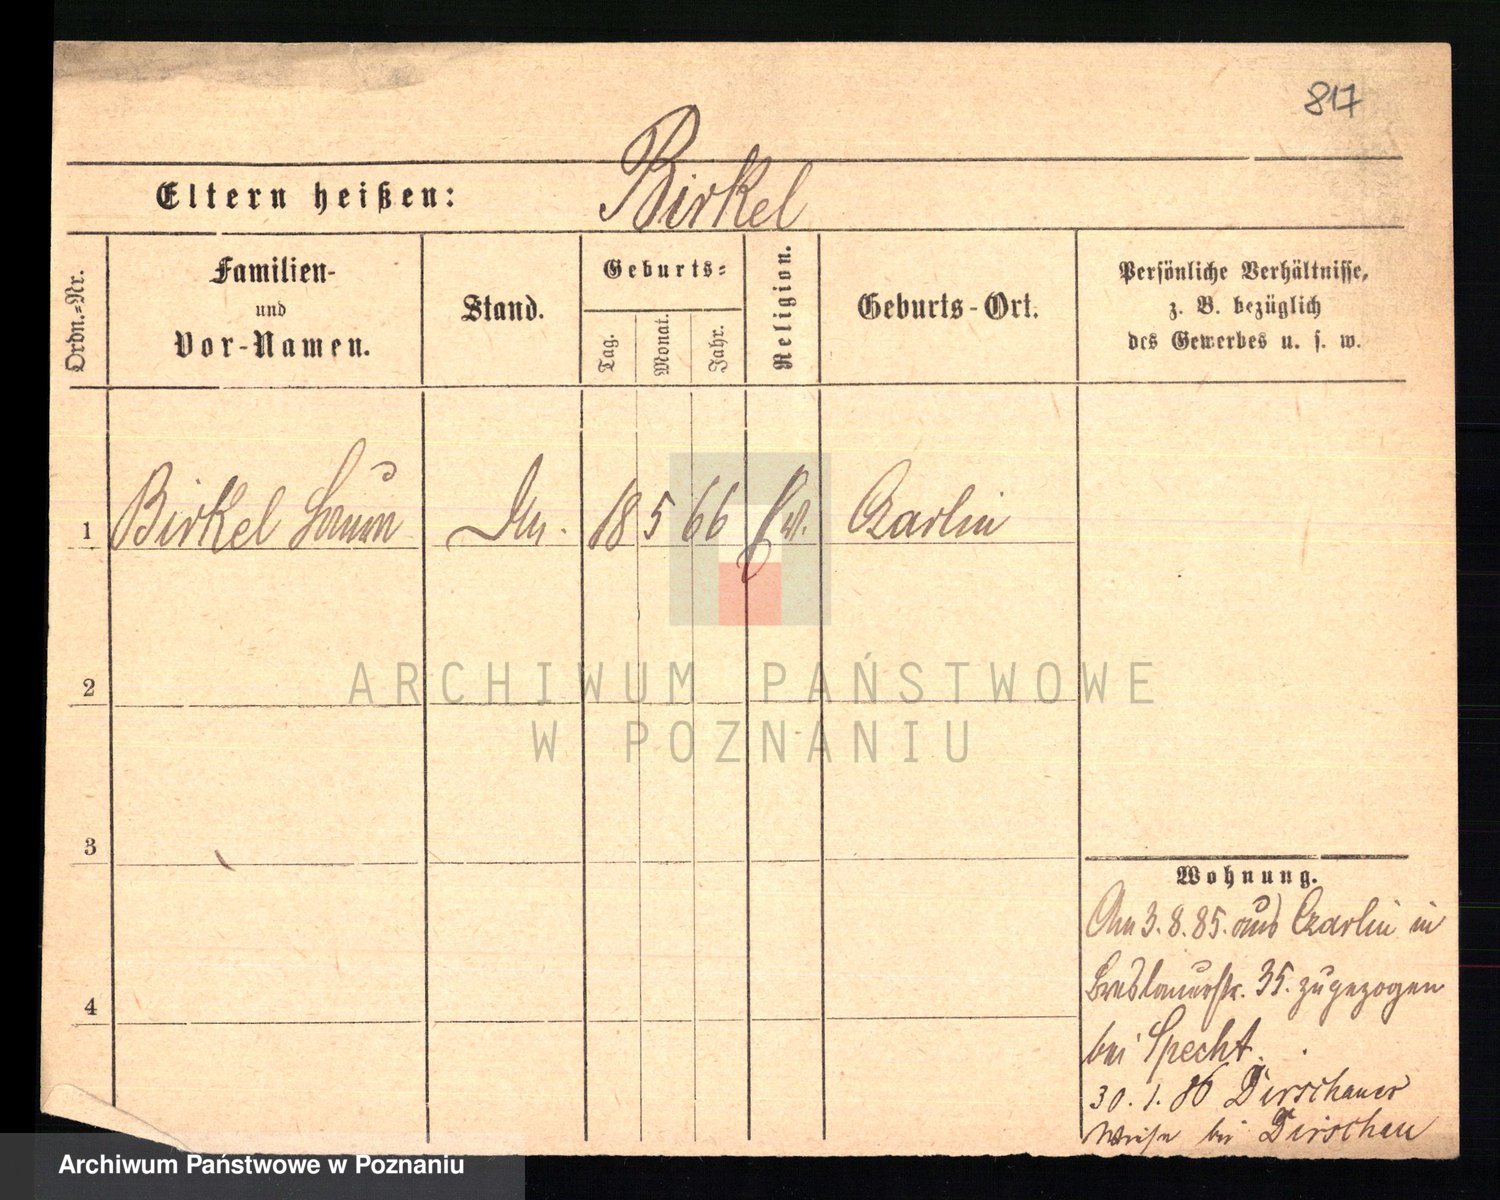 817
Eltern heißen: Birkel
Ordn.-Nr.
Familien-
und
Vor-Namen.
Stand.
Geburts-
Tag.
Monat.
Jahr.
Religion.
Geburts-Ort.
Persönliche Verhältnisse,
z. B. bezüglich
des Gewerbes u. s. w.
1 Birkel 18 5 66 Ev. Czarlin
2
ARCHIWUM PAŃSTWOWE
W POZNANIU
3
4
Wohnung.
Am 3.8.85. aus Czarlin in
Breslauerstr. 35. zugezogen
bei Specht.
30.1.86 Dirschauer
Wiese bei Dirschau
Archiwum Państwowe w Poznaniu